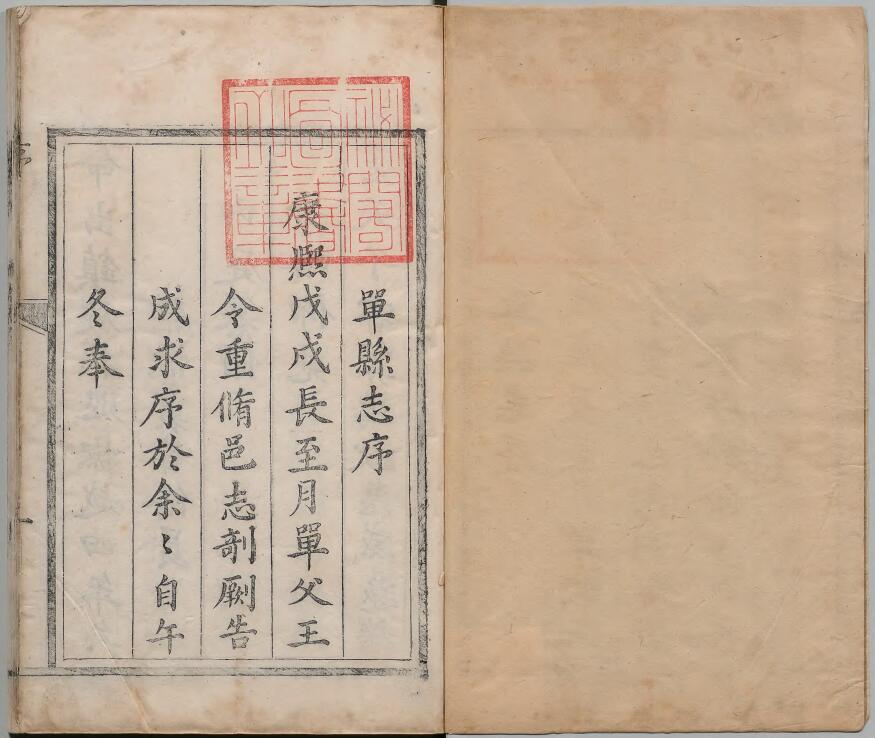 單縣志序
康熈戊戌長至月單父王
令重脩邑志剞劂告
成求序於余〻自午
冬奉